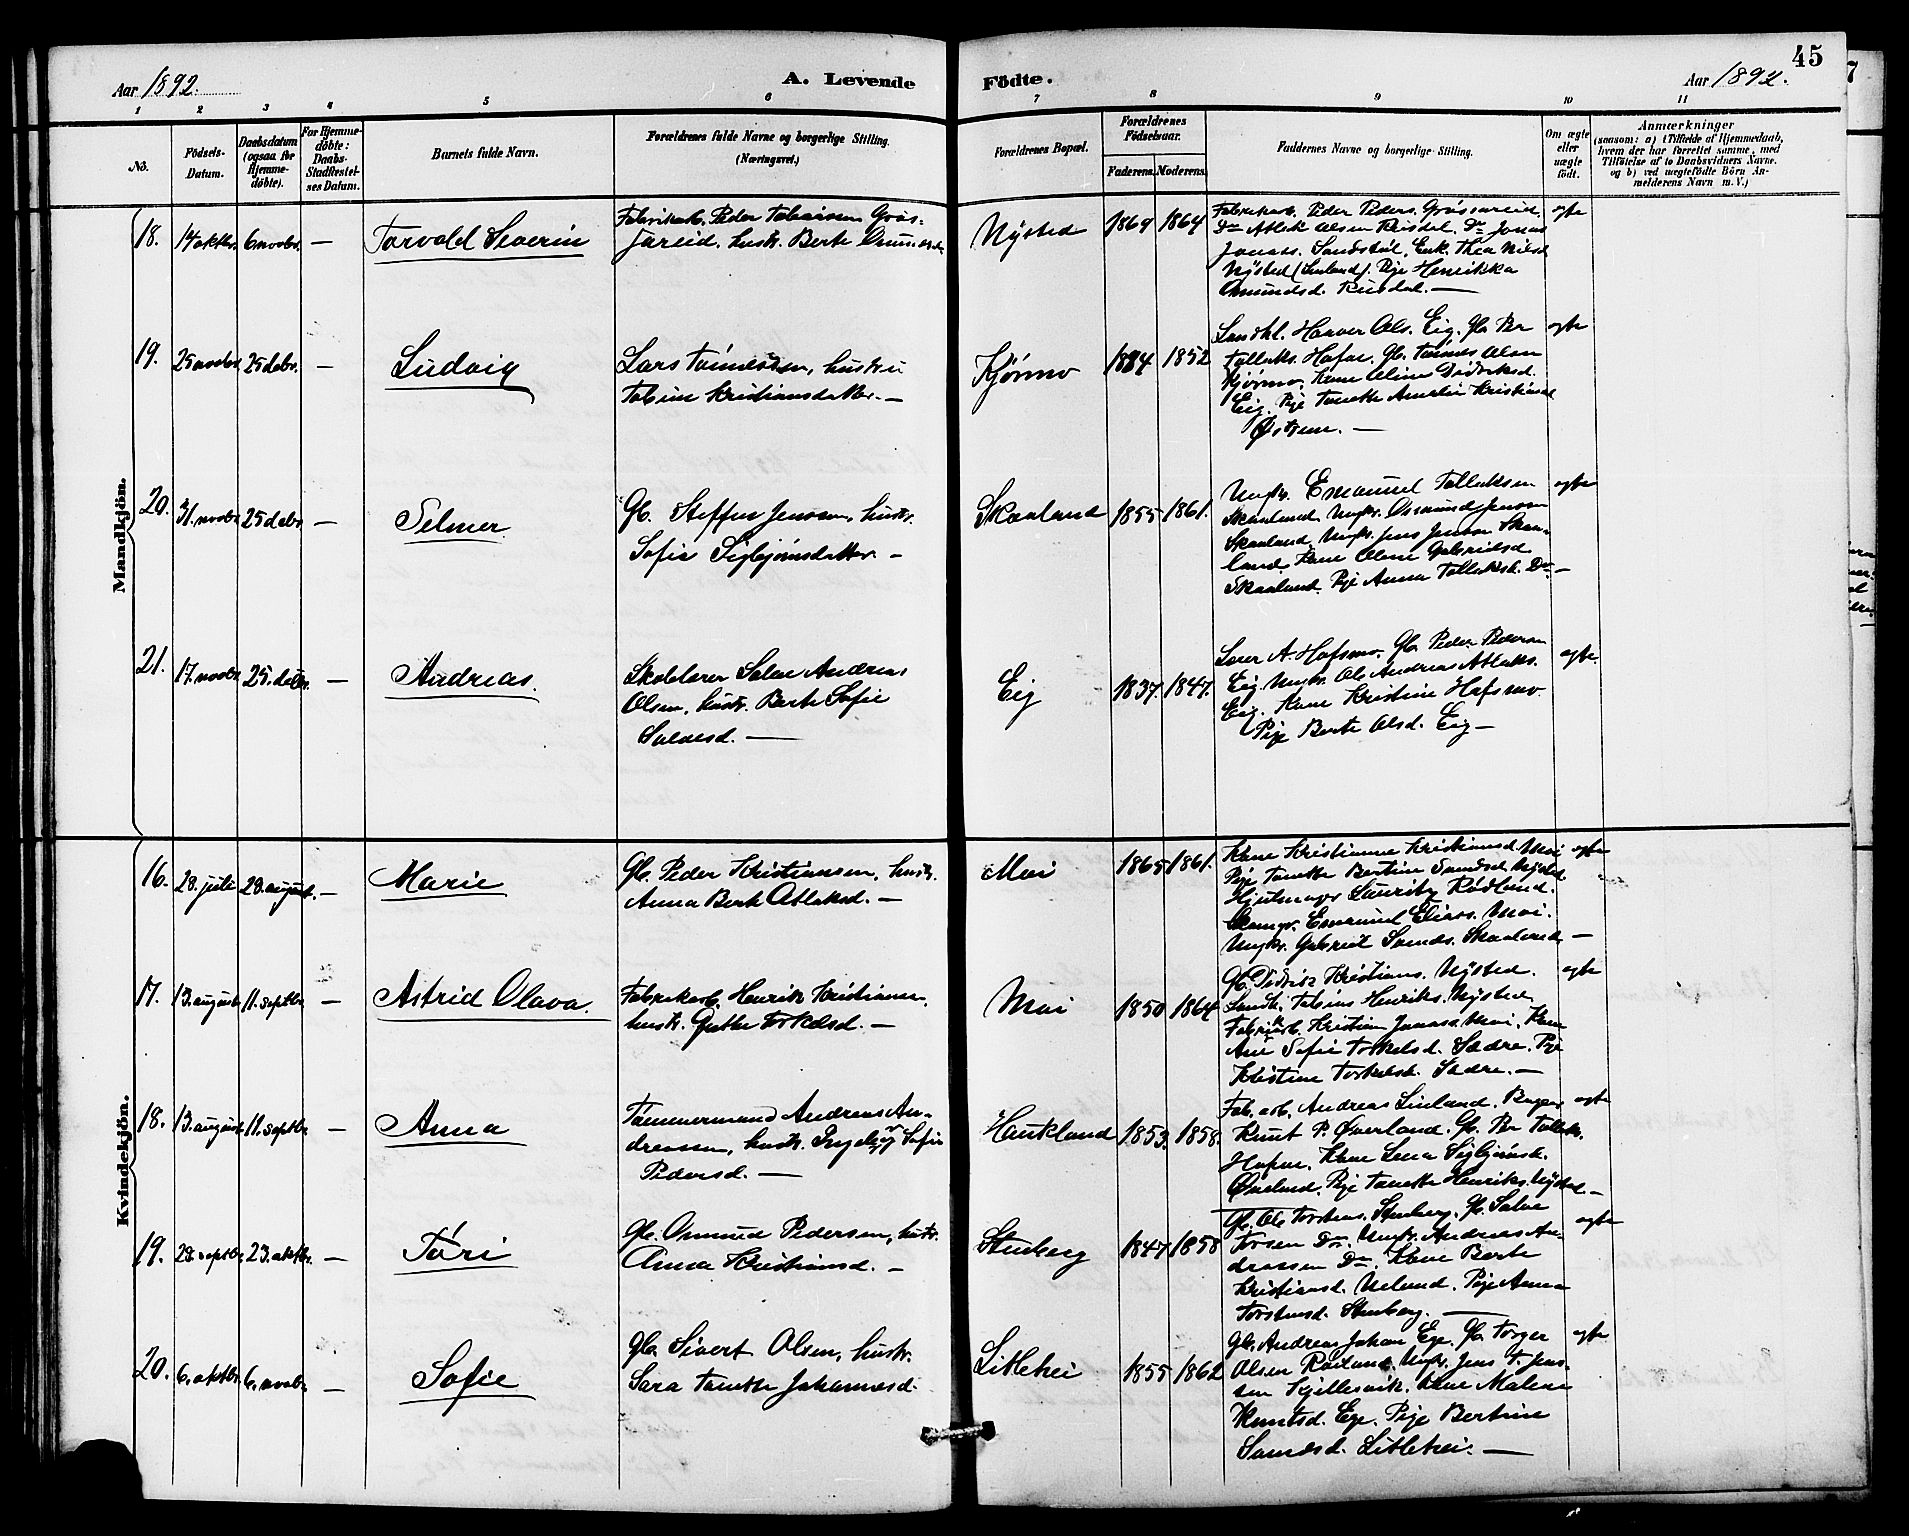 45
Aar 1892.
A. Levende
Fødte.
Aar 1892.
1 2 3 4 5 6 7 8 9 10 11
No.
Fødsels-Datum.
Daabsdatum (ogsaa for Hjemmedøbte).
For Hjemmedøbte: Daabs-Stadfæstelses Datum.
Barnets fulde Navn.
Forældrenes fulde Navne og borgerlige Stilling. (Næringsvei.)
Forældrenes Bopæl.
Forældrenes Fødselsaar.
Faderens. Moderens.
Faddernes Navne og borgerlige Stilling.
Om ægte eller uægte født.
Anmærkninger
(saasom: a) i Tilfælde af Hjemmedaab, hvem der har forrettet samme, med Tilføielse af to Daabsvidners Navne. og b) ved uægtefødte Børn Anmelderens Navn m. V.)
Mandkjøn.
18. 14 oktbr. 6 novbr. — Torvald Severin
Fabrikarb. Peder Tobiassen Grøs-
sareid, hustr. Berte Omundsd.
Nysted 1869 1864
Fabrikarb. Peder Peders. Grøssareid,
Do Atlak Olsen Rusdal, Do Jonas
Jonass. Sandstøl, Enk. Thea Nilsd
Nysted (Linland). Pige Henrikka
Omundsd. Rusdal. —
ægte
19. 25 novbr. 25 debr. — Ludvig
Lars Tønnessen, hustru
Tobine Kristiansdatter. —
Kjørmo 1884 1852
Landhl. Haaver Ols. Eig, Gb. Per
Tolleks. Hafsø. Gb. Tønnes Olsen
Kjørmo. Kone Oline Didriksd.
Eig. Pige Tonette Amalie Kristiansd
Østrem. —
ægte
20. 31. novbr. 25 debr. — Selmer
Gb. Steffen Jensen, hustr.
Sofie Sigbjørnsdatter. —
Skaaland 1855 1861.
Ungkr. Emanuel Tolleksen
Skaaland. Ungkr. Osmund Jensen
Skaaland, Ungkr. Jens Jensen Skaa-
land. Kone Oline Gabrielsd
Skaaland. Pige Anna Tolleksd. Do —
ægte
21. 17. novbr. 25. debr. — Andreas.
Skolelærer Salve Andreas
Olsen, hustr. Berte Sofie
Salvesd. —
Eig 1837 1847.
Lærer A. Hafsmo. Gb. Peder Pedersen
Eig. Ungkr. Ole Andreas Atlaks.
Eig. Kone Kristine Hafsmo.
Pige Berte Olsd. Eig —
ægte.
Kvindekjøn.
16. 28. juli 28. august. — Marie
Gb. Peder Kristiansen, hustr.
Anna Berte Atlaksd. —
Moi 1865 1861.
Kone Kristianne Kristiansd. Moi
Pige Tonette Bertine Samdsd Nysted
Hjulmager Lauritz Rødland.
Emanuel Eliass. Moi.
Ungkr. Gabriel Samds. Skaaland —
ægte
17. 13. august 11. septbr. — Astrid Olava.
Fabrikarb. Henrik Kristiansen,
hustr. Gurthe Torkelsd. —
Moi 1850 1864
Gb. Didrik Kristians. Nysted.
Landh. Tobias Henriks. Nysted
Fabrikarb. Kristian Jonassd Moi. Kone
Ane Sofie Torkelsd. Sædre. Pige
Kristine Torkelsd. Sædre. —
ægte
18. 13. august 11. septbr. — Anna
Tømmermand Andreas An-
dreassen, hustr. Ingeborg Sofie
Pedersd. —
Haukland 1853. 1858.
Fab. arb. Andreas Linland. Bager
Knut P. Øverland. Gb. Per Tolleks.
Hafsø. Kone Lena Sigbjørnsd.
Øverland. Pige Tonette Henriks. Nysted —
ægte
19. 28. septbr. 23. oktbr. — Tøri
Gb. Osmund Pedersen, hustr.
Anna Kristiansd. —
Stenberg 1847 1858
Gb. Ole Torstens. Stenberg. Gb. Salve
Torsen Do. Ungkr. Andreas An-
dreassen Do. Kone Berte
Kristiansd. Ueland. Pige Anna
Torstensd. Stenberg. —
ægte
20. 6. oktbr. 6. novbr. — Sofie
Gb. Sivert Olsen, hustr.
Sara Tonette Johannesd.
Litlehei 1855 1862
Gb. Andreas Johan Ege. Gb. Torger
Olsen Røiland. Ungkr. Jens T. Jens-
sen Kjellesvik. Kone Malene
Knutsd. Ege. Pige Bertine
Samdsd. Litlehei. —
ægte